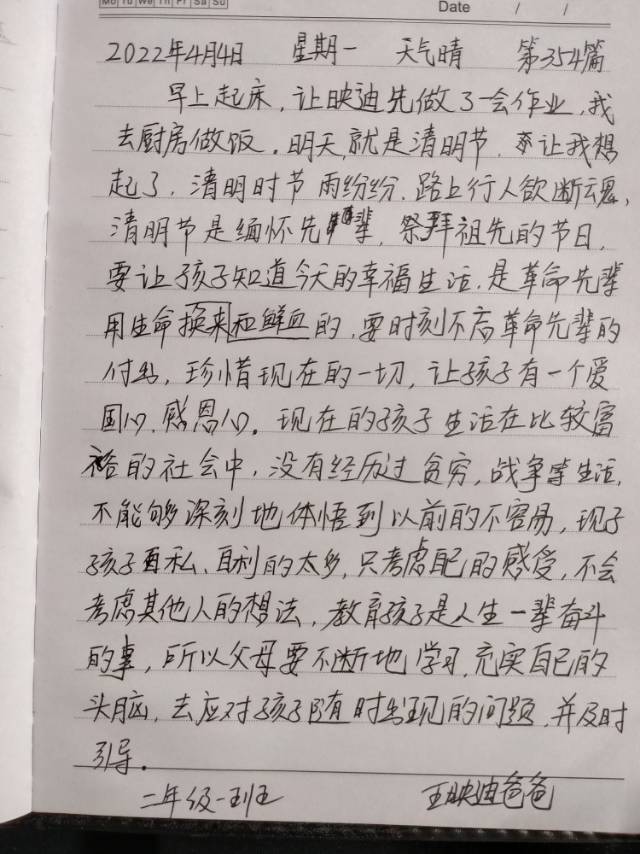 Mo Tu We Th Fr Sa Su
Date / /
2022年4月4日 星期一 天气晴 第354篇
早上起床，让映迪先做了一会作业，我
去厨房做饭。明天就是清明节，让我想
起了，清明时节雨纷纷，路上行人欲断魂，
清明节是缅怀先辈，祭拜祖先的节日，
要让孩子知道今天的幸福生活，是革命先辈
用生命换来和鲜血的，要时刻不忘革命先辈的
付出，珍惜现在的一切，让孩子有一个爱
国心、感恩心。现在的孩子生活在比较富
裕的社会中，没有经历过贫穷，战争等生活，
不能够深刻地体悟到以前的不容易，现子
孩子自私、自利的太多，只考虑自己的感受，不会
考虑其他人的想法，教育孩子是人生一辈奋斗
的事，所以父母要不断地学习，充实自己的
头脑，去应对孩子随时出现的问题，并及时
引导。
二年级一班 王映迪爸爸